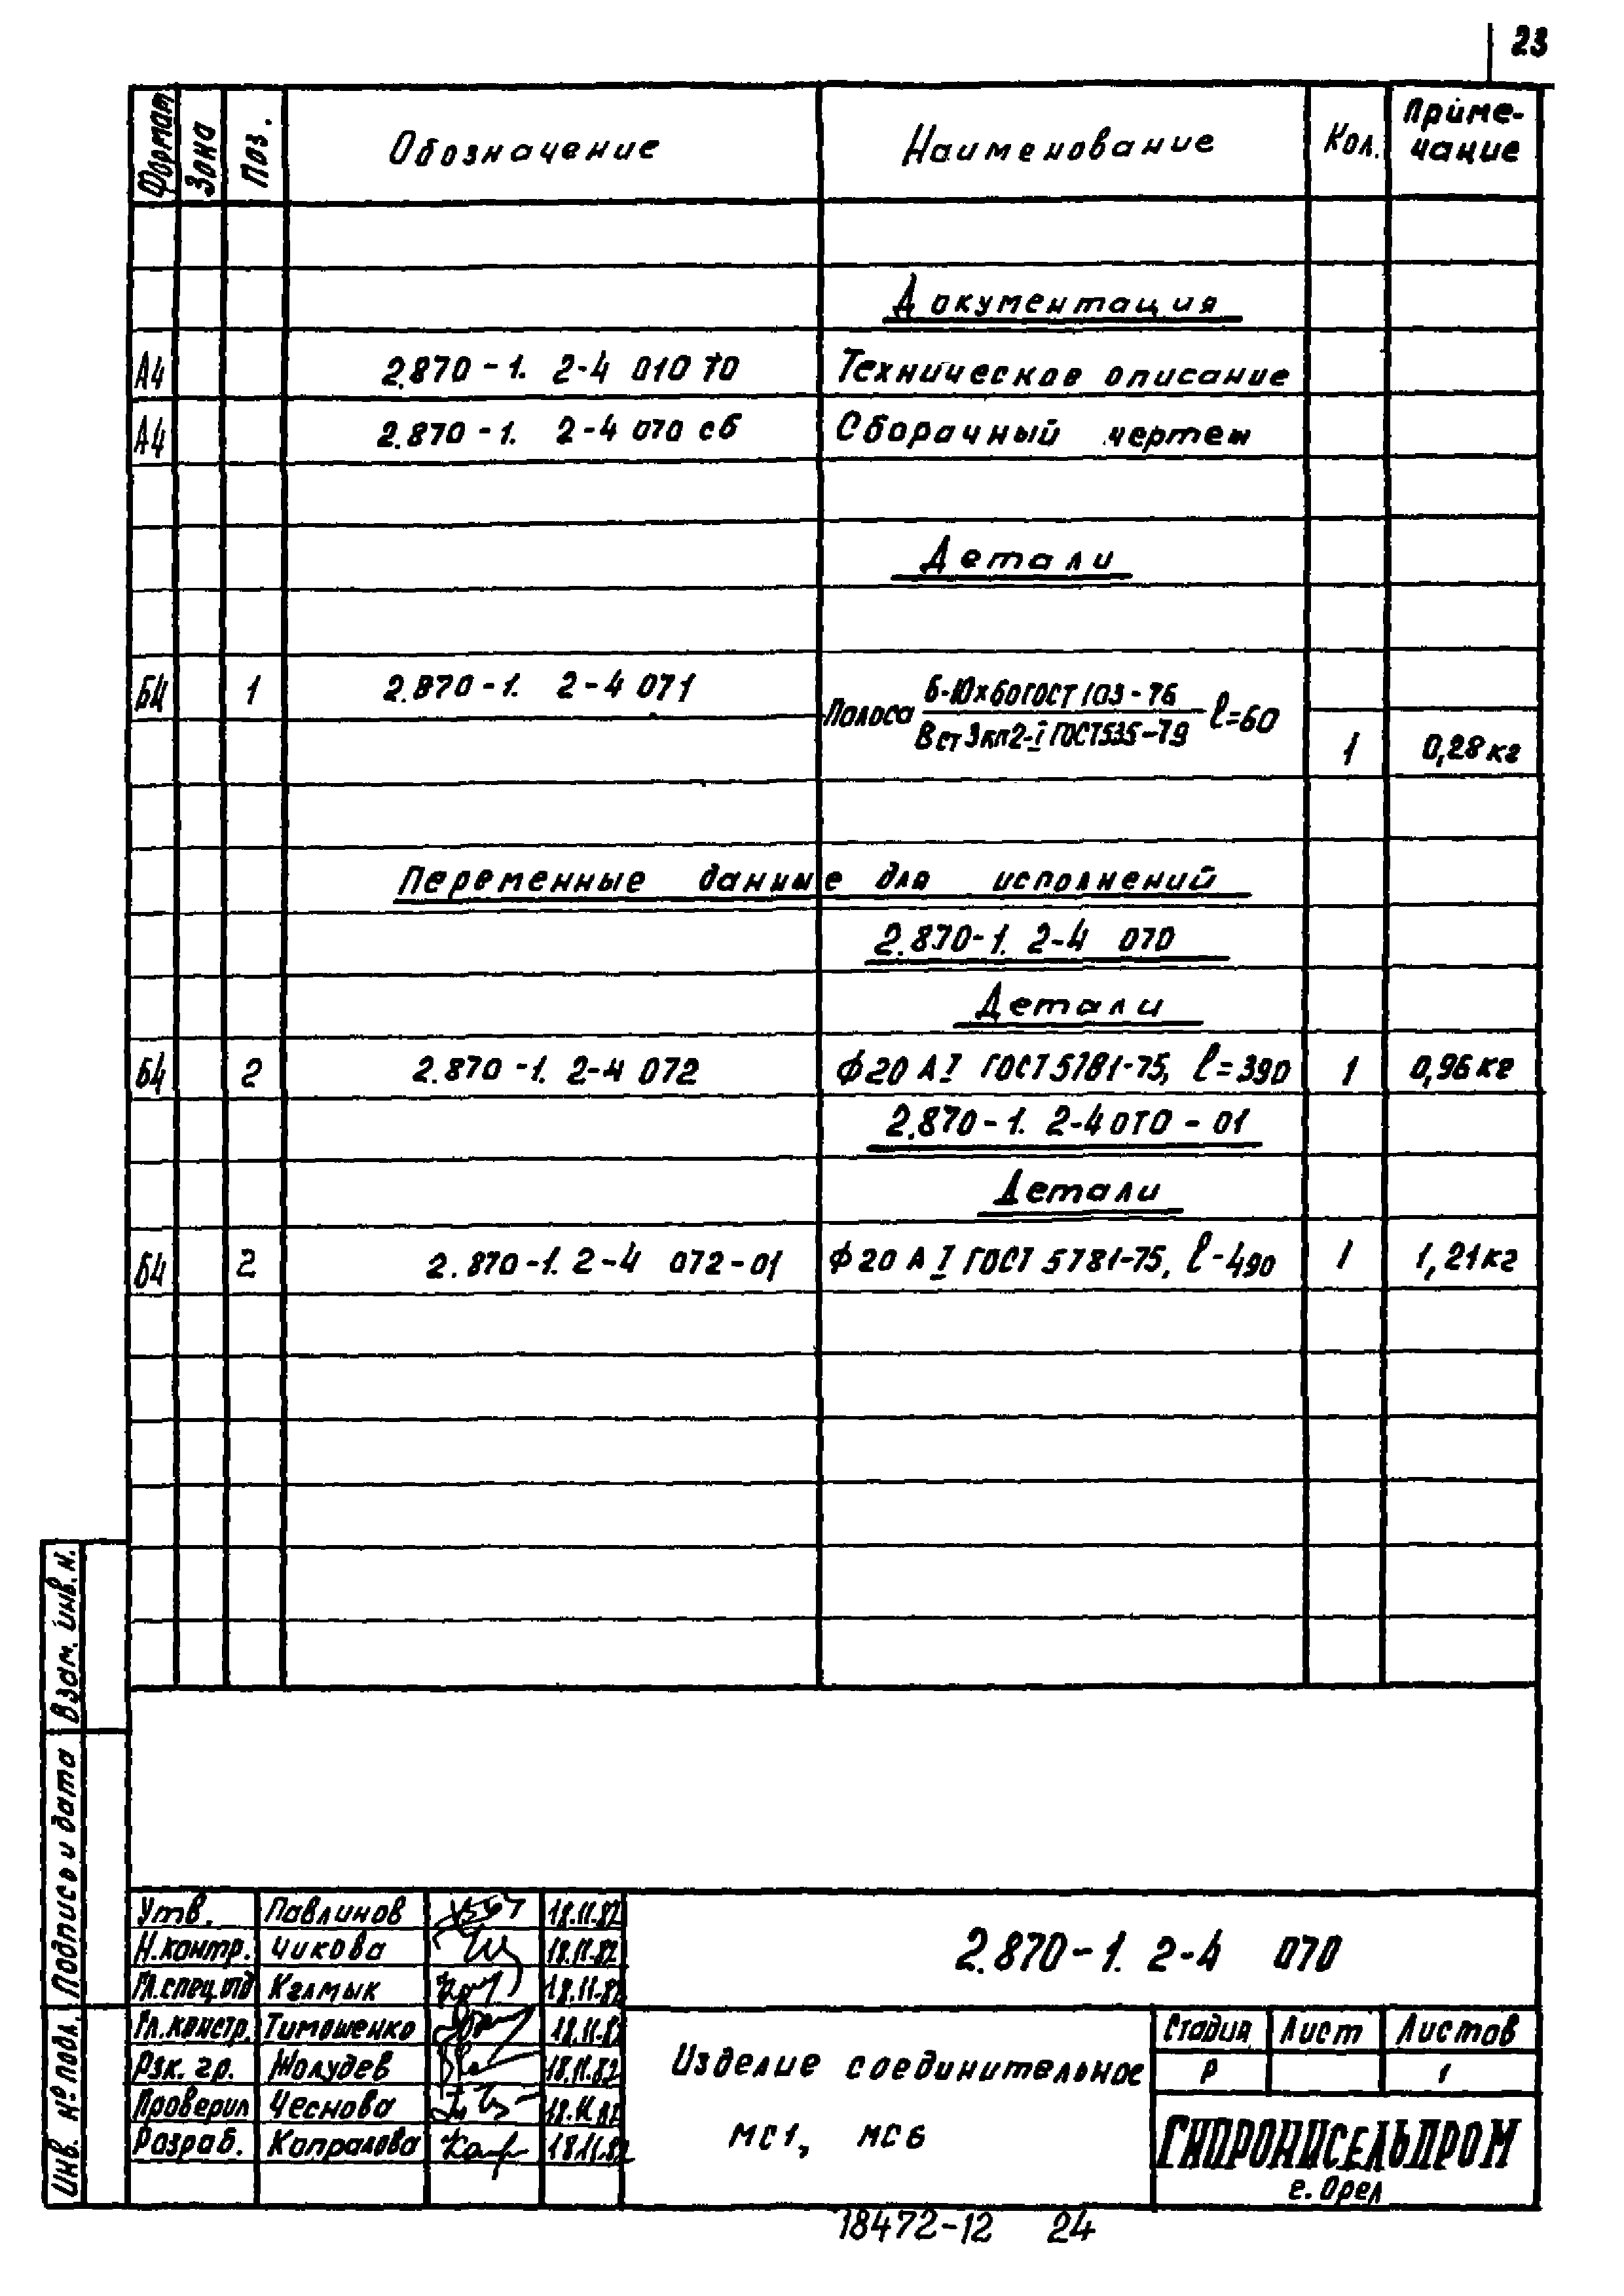 23
Формат Зона Поз. Обозначение Наименование Кол. Приме-
чание
Документация
А4 2.870-1. 2-4 010 ТО Техническое описание
А4 2.870-1. 2-4 070 сб Сборачный чертеж
Детали
Б4 1 2.870-1. 2-4 071 Полоса Б-10х60 ГОСТ 103-76 ℓ=60
В Ст 3 кп2-I ГОСТ 535-79 1 0,28 кг
Переменные данные для исполнений
2.870-1. 2-4 070
Детали
Б4 2 2.870-1. 2-4 072 Ф20 АI ГОСТ 5781-75, ℓ=390 1 0,96 кг
2.870-1. 2-4 070-01
Детали
Б4 2 2.870-1. 2-4 072-01 Ф20 АI ГОСТ 5781-75, ℓ-490 1 1,21 кг
Взам. инв. н.
Подпись и дата
Инв. № подл.
Утв. Павлинов 18.11.82
Н.контр. Чикова 18.11.82
Гл.спец.отд Кглмык 18.11.82
Гл.констр. Тимошенко 18.11.82
Рзк. гр. Жолудев 18.11.82
Проверил Чеснова 18.11.82
Разраб. Капралова 18.11.82
2.870-1. 2-4 070
Изделие соединительное
МС1, МС6
Стадия Лист Листов
Р 1
ГИПРОНИСЕЛЬПРОМ
г. Орел
18472-12 24